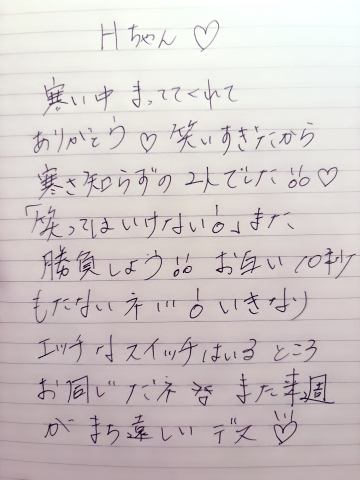 Hちゃん♡
寒い中 まっててくれて
ありがとう♡ 笑いすぎたから
寒さ知らずの2人でした!!♡
「笑ってはいけない!」また
勝負しよう!! お互い10秒
もたないネ!!! いきなり
エッチなスイッチはいるところ
お同じだネ また来週
がまち遠しいデス♡